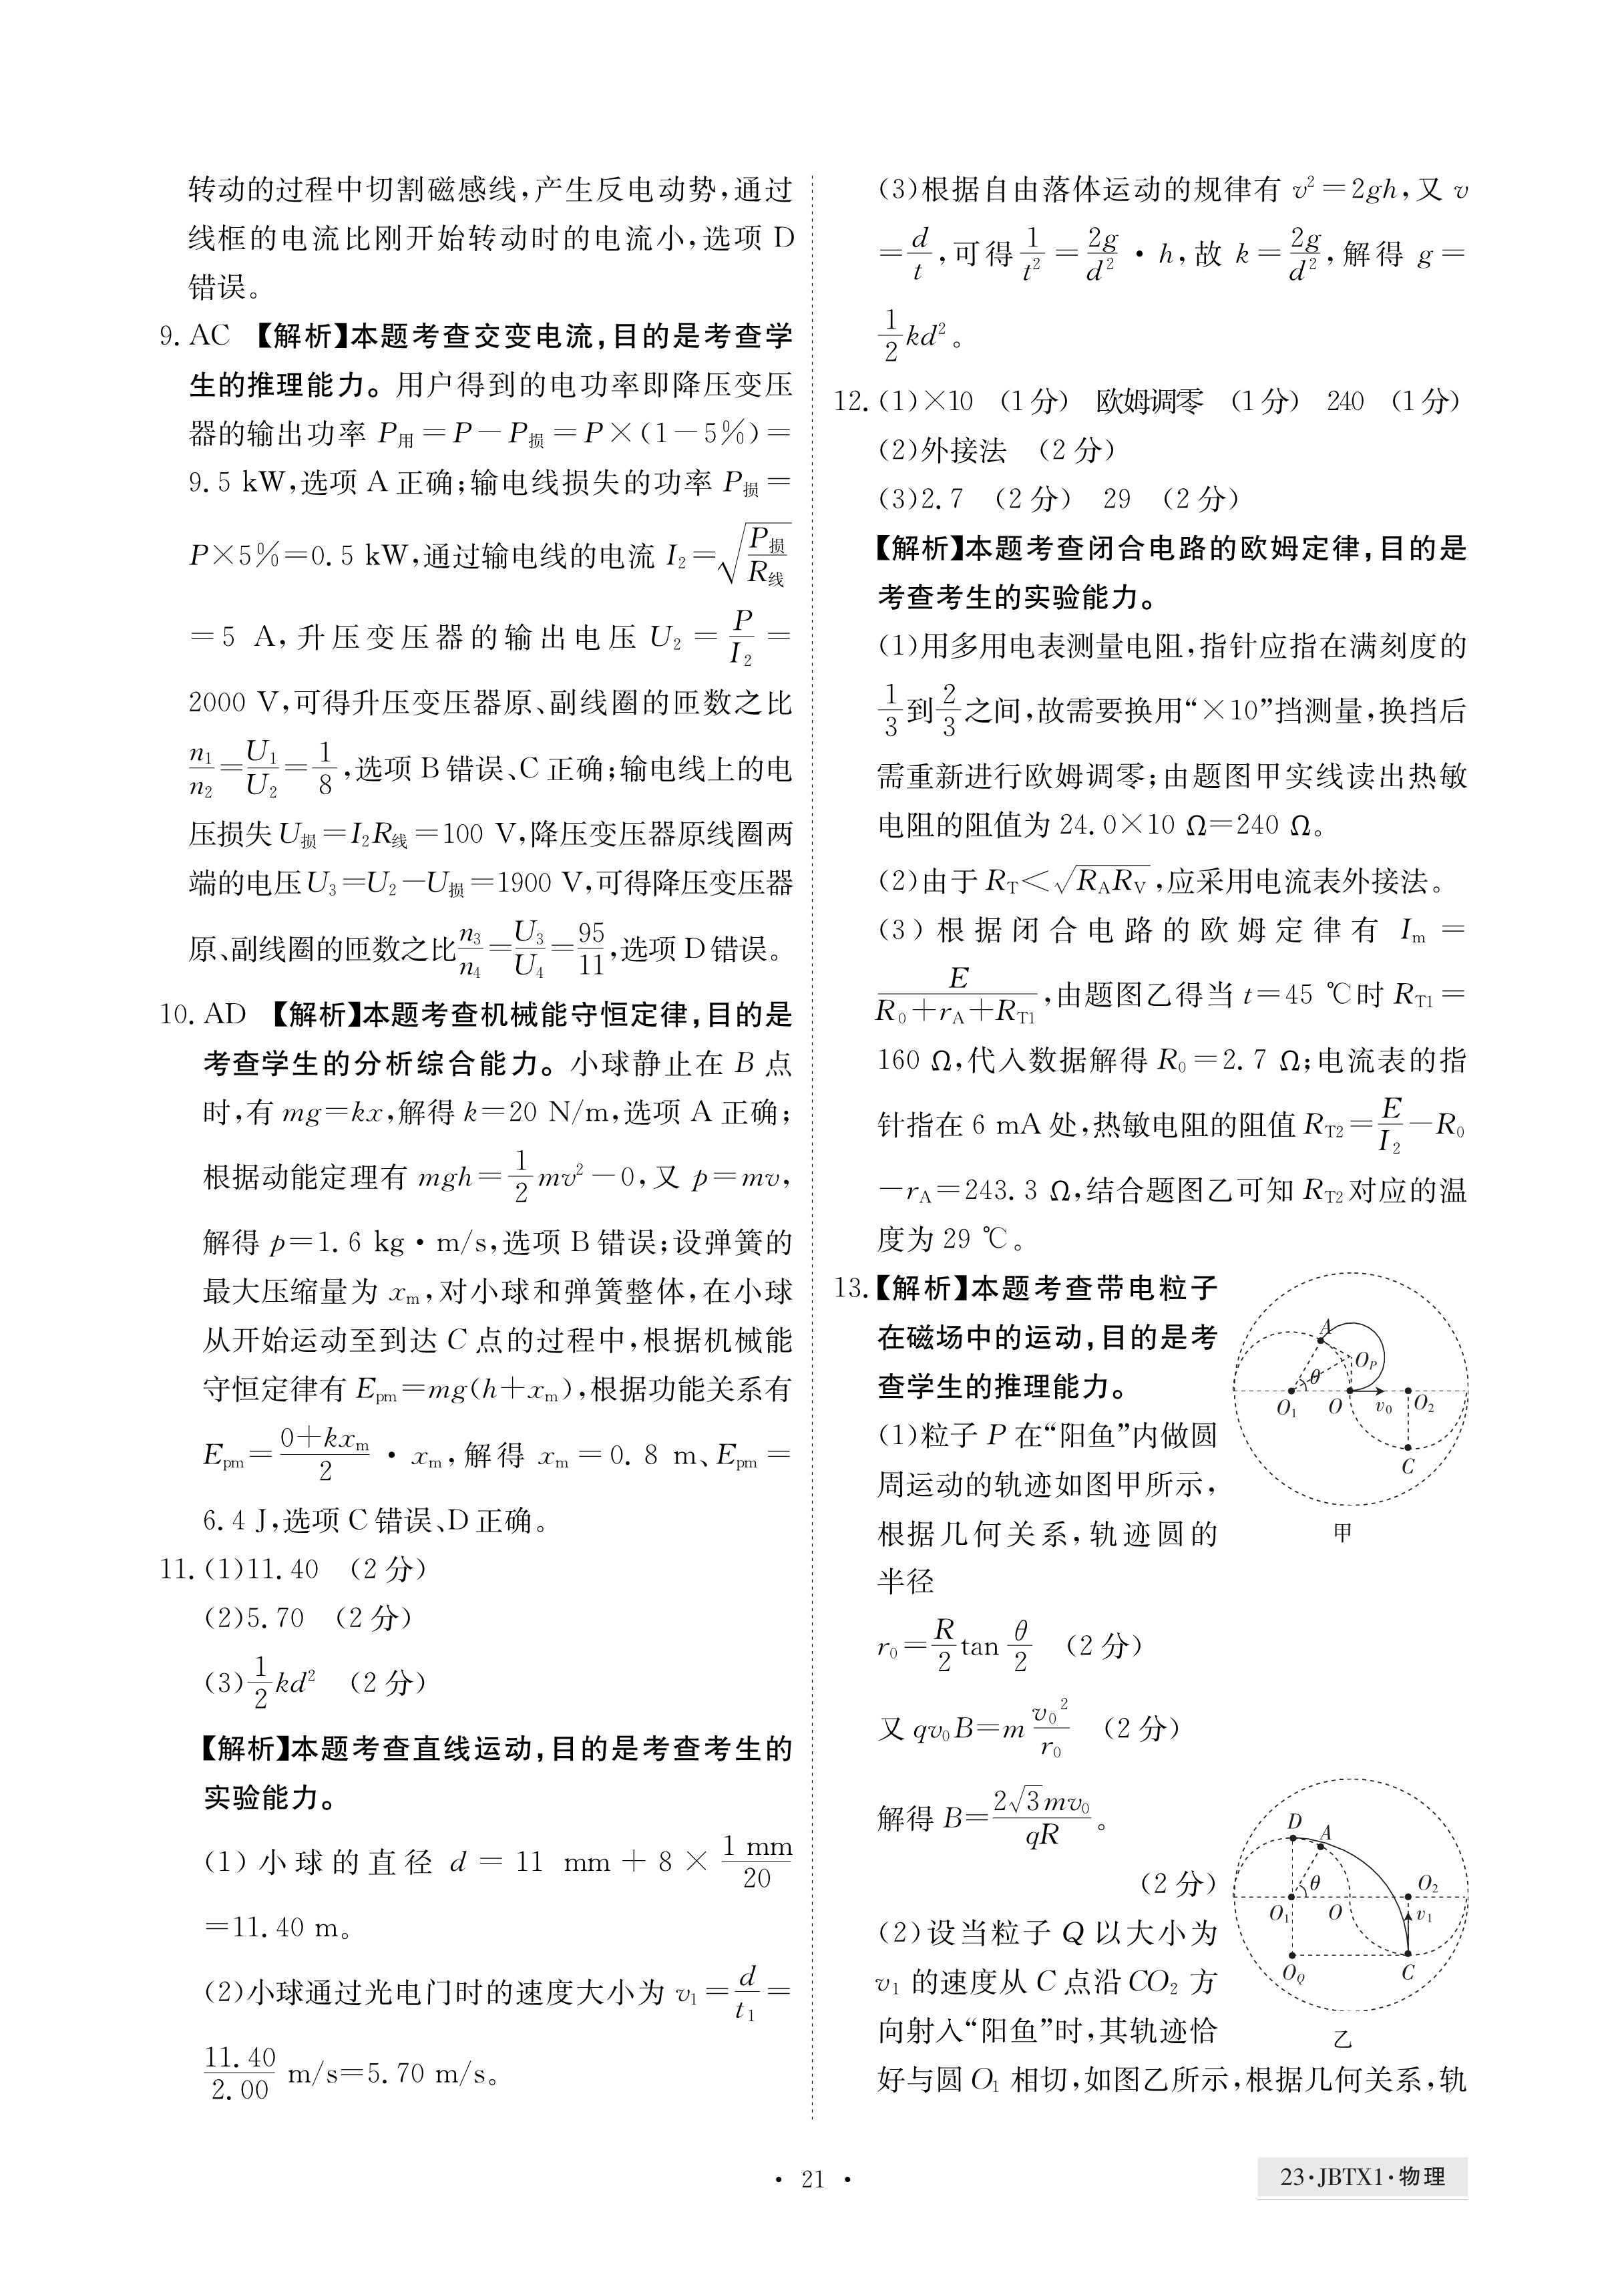 转动的过程中切割磁感线,产生反电动势,通过
线框的电流比刚开始转动时的电流小,选项 D
错误。
9. AC 【解析】本题考查交变电流,目的是考查学
生的推理能力。用户得到的电功率即降压变压
器的输出功率 P用=P-P损=P×(1-5%)=
9.5 kW,选项 A 正确;输电线损失的功率 P损=
P×5%=0.5 kW,通过输电线的电流 I₂=√(P损/R线)
=5 A,升压变压器的输出电压 U₂=P/I₂=
2000 V,可得升压变压器原、副线圈的匝数之比
n₁/n₂=U₁/U₂=1/8,选项 B 错误、C 正确;输电线上的电
压损失 U损=I₂R线=100 V,降压变压器原线圈两
端的电压 U₃=U₂-U损=1900 V,可得降压变压器
原、副线圈的匝数之比n₃/n₄=U₃/U₄=95/11,选项 D 错误。
10. AD 【解析】本题考查机械能守恒定律,目的是
考查学生的分析综合能力。小球静止在 B 点
时,有 mg=kx,解得 k=20 N/m,选项 A 正确;
根据动能定理有 mgh=1/2 mv²-0,又 p=mv,
解得 p=1.6 kg·m/s,选项 B 错误;设弹簧的
最大压缩量为 xm,对小球和弹簧整体,在小球
从开始运动至到达 C 点的过程中,根据机械能
守恒定律有 Epm=mg(h+xm),根据功能关系有
Epm=(0+kxm)/2·xm,解得 xm=0.8 m、Epm=
6.4 J,选项 C 错误、D 正确。
11. (1)11.40 (2 分)
(2)5.70 (2 分)
(3)1/2 kd² (2 分)
【解析】本题考查直线运动,目的是考查考生的
实验能力。
(1)小球的直径 d=11 mm+8×1 mm/20
=11.40 m。
(2)小球通过光电门时的速度大小为 v₁=d/t₁=
11.40/2.00 m/s=5.70 m/s。
(3)根据自由落体运动的规律有 v²=2gh,又 v
=d/t,可得1/t²=2g/d²·h,故 k=2g/d²,解得 g=
1/2 kd²。
12. (1)×10 (1 分) 欧姆调零 (1 分) 240 (1 分)
(2)外接法 (2 分)
(3)2.7 (2 分) 29 (2 分)
【解析】本题考查闭合电路的欧姆定律,目的是
考查考生的实验能力。
(1)用多用电表测量电阻,指针应指在满刻度的
1/3到2/3之间,故需要换用“×10”挡测量,换挡后
需重新进行欧姆调零;由题图甲实线读出热敏
电阻的阻值为 24.0×10 Ω=240 Ω。
(2)由于 RT<√(RARV),应采用电流表外接法。
(3)根据闭合电路的欧姆定律有 Im=
E/(R₀+rA+RT1),由题图乙得当 t=45 ℃时 RT1=
160 Ω,代入数据解得 R₀=2.7 Ω;电流表的指
针指在 6 mA 处,热敏电阻的阻值 RT2=E/I₂-R₀
-rA=243.3 Ω,结合题图乙可知 RT2 对应的温
度为 29 ℃。
13. 【解析】本题考查带电粒子
在磁场中的运动,目的是考
查学生的推理能力。
(1)粒子 P 在“阳鱼”内做圆
周运动的轨迹如图甲所示,
根据几何关系,轨迹圆的
半径
A
OP
θ
O₁ O v₀ O₂
C
甲
r₀=R/2 tan θ/2 (2 分)
又 qv₀B=m v₀²/r₀ (2 分)
解得 B=2√3mv₀/qR。
(2 分)
(2)设当粒子 Q 以大小为
v₁ 的速度从 C 点沿 CO₂ 方
向射入“阳鱼”时,其轨迹恰
D A
θ O₂
O₁ O v₁
OQ C
乙
好与圆 O₁ 相切,如图乙所示,根据几何关系,轨
· 21 ·
23·JBTX1·物理